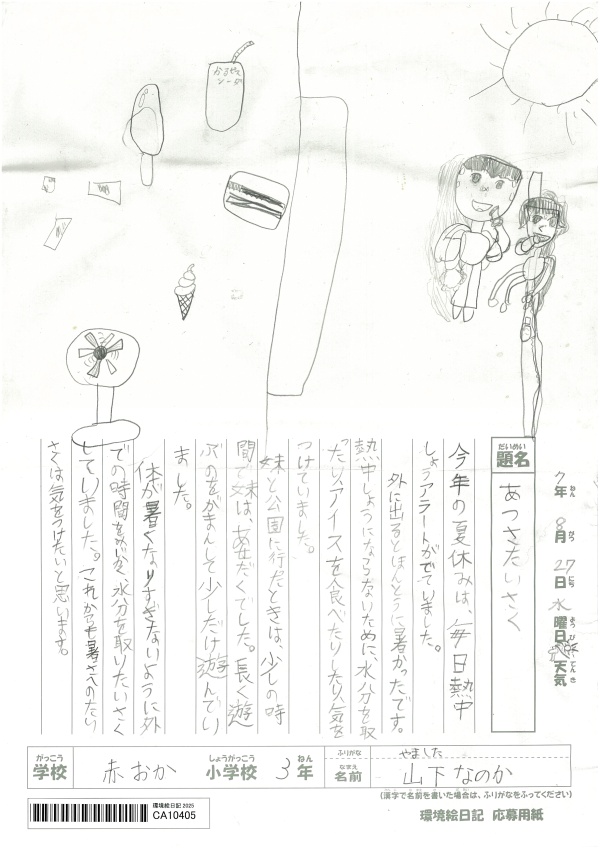 かるぴす
ソーダ
7年 8月 27日 水曜日 天気
ねん がつ にち ようび てんき
だいめい
題名
あつさたいさく
今年の夏休みは、毎日熱中
しょうアラートがでていました。
外に出るとほんとうに暑かったです。
熱中しょうにならないために、水分を取
ったり、アイスを食べたりしたり、気を
つけていました。
妹と公園に行たときは、少しの時
間で妹は、あせだくでした。長く遊
ぶのをがまんして少しだけ遊んでい
ました。
体が暑くなりすぎないように外
での時間をみじかく、水分を取りたいさく
していました。これからも暑さへのたい
さくは気をつけたいと思います。
がっこう
学校
赤おか
しょうがっこう
小学校
3年
ねん
ふりがな
やました
なまえ
名前
山下なのか
(漢字で名前を書いた場合は、ふりがなをふってください)
環境絵日記 2025
CA10405
環境絵日記 応募用紙